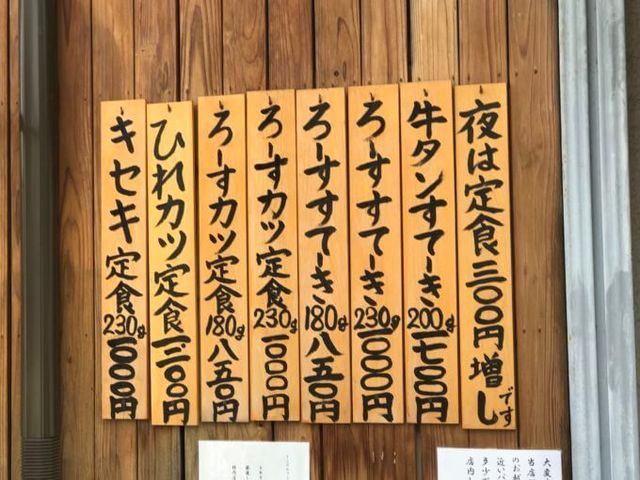 夜は定食三〇〇円増しです
牛タンすてーき200g一七〇〇円
ろーすすてーき230g一〇〇〇円
ろーすすてーき180g八五〇円
ろーすカツ定食230g一〇〇〇円
ろーすカツ定食180g八五〇円
ひれカツ定食一、三〇〇円
キセキ定食230g一〇〇〇円
大変
当店
のお
近い
多少
店内